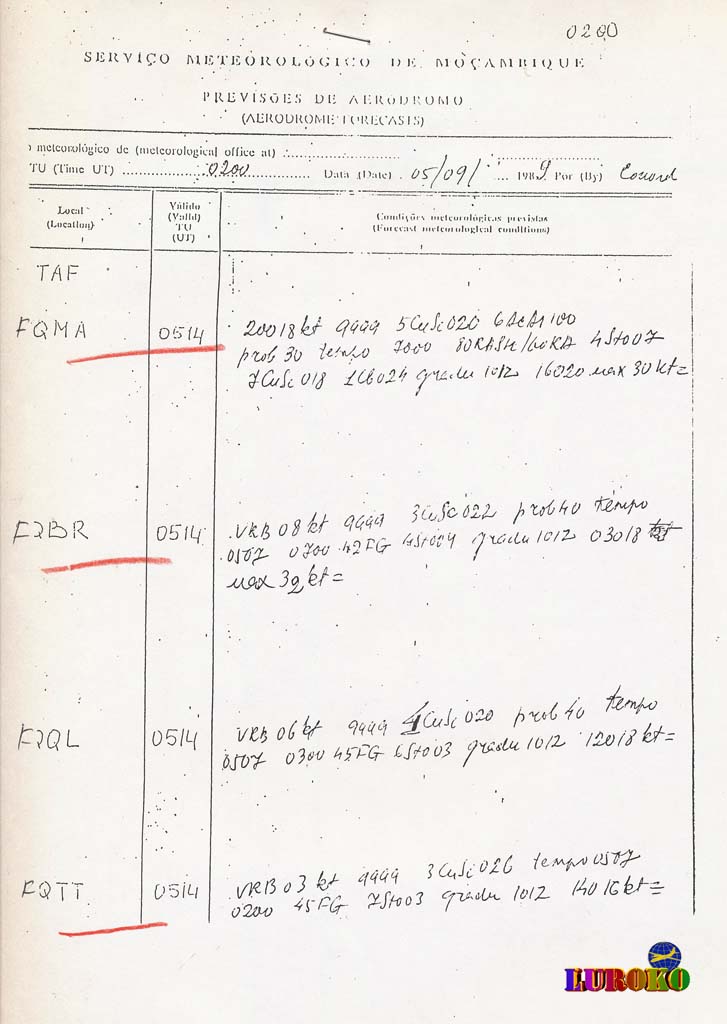 0200
SERVIÇO METEOROLÓGICO DE MOÇAMBIQUE
PREVISÕES DE AERÓDROMO
(AERODROME FORECASTS)
o meteorológico de (meteorological office at)
TU (Time UT) 0200 Data (Date) 05/09/ 1989 Por (By)
Local
(Location)
Válido
(Valid)
TU
(UT)
Condições meteorológicas previstas
(Forecast meteorological conditions)
TAF
FQMA 0514 20018kt 9999 5CuSc020 6AcAs100
prob 30 tempo 7000 80RASH/60RA 4St007
7CuSc018 1CB024 gradu 1012 16020 max 30kt=
FQBR 0514 VRB08kt 9999 3CuSc022 prob40 tempo
0507 0700 42FG 4St004 gradu 1012 03018
max 32kt=
FQQL 0514 VRB06kt 9999 4CuSc020 prob 40 tempo
0507 0300 45FG 6St003 gradu 1012 12018kt=
FQTT 0514 VRB03kt 9999 3CuSc026 tempo 0507
0200 45FG 7St003 gradu 1012 14016kt=
LUROKO